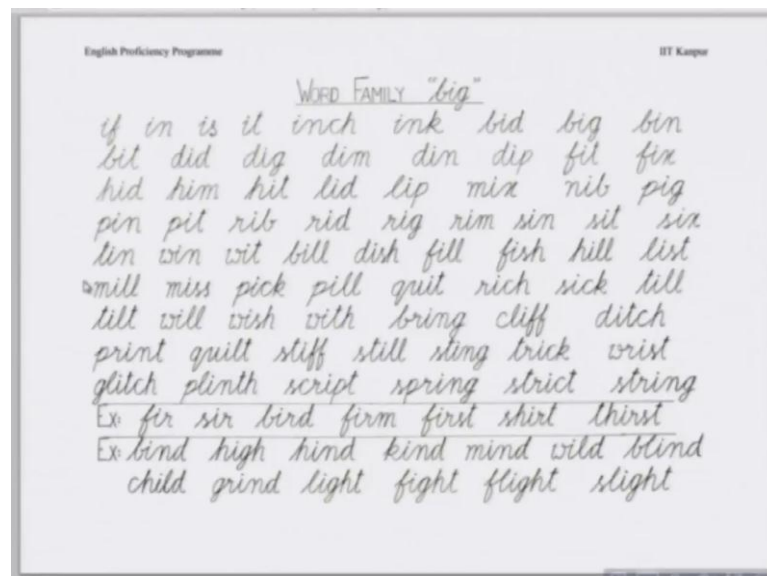 English Proficiency Programme IIT Kanpur
WORD FAMILY "big"
if in is it inch ink bid big bin
bit did dig dim din dip fit fix
hid him hit lid lip mix nib pig
pin pit rib rid rig rim sin sit six
tin win wit bill dish fill fish hill list
mill miss pick pill quit rich sick till
tilt will wish with bring cliff ditch
print quilt stiff still sting trick wrist
glitch plinth script spring strict string
Ex: fir sir bird firm first shirt thirst
Ex: bind high hind kind mind wild blind
child grind light fight flight slight